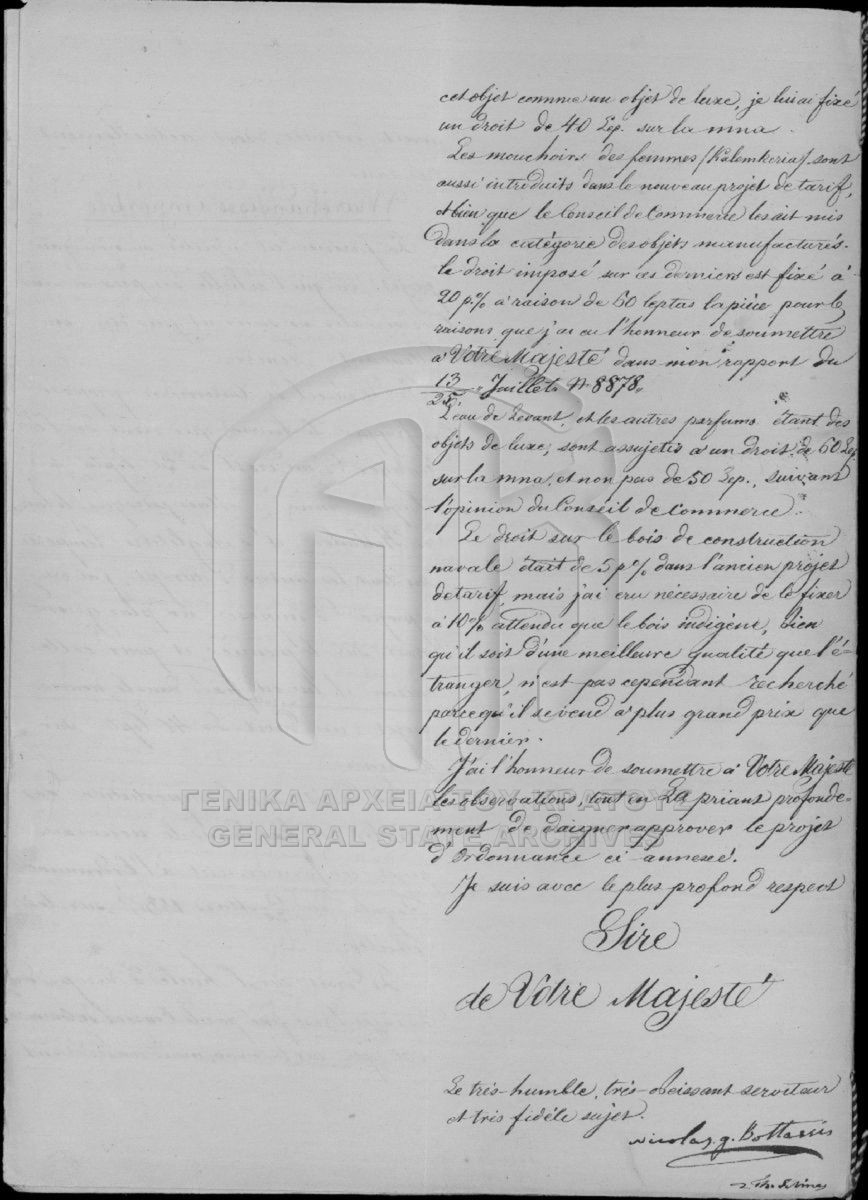 cet objet comme un objet de luxe, je lui ai fixé
un droit de 40 Lep. sur la mna.
Les mouchoirs des femmes /Kalemkeria/ sont
aussi introduits dans le nouveau projet de tarif,
et bien que le Conseil de Commerce les ait mis
dans la catégorie des objets manufacturés.
le droit imposé sur ces derniers est fixé à
20 p.% à raison de 60 leptas la pièce pour les
raisons que j'ai eu l'honneur de soumettre
à Votre Majesté dans mon rapport du
13/25 Juillet. N 8878.
L'eau de Levant, et les autres parfums étant des
objets de luxe, sont assujetis à un droit de 60 Lep.
sur la mna, et non pas de 50 Lep., suivant
l'opinion du Conseil de Commerce.
Le droit sur le bois de construction
navale était de 5 p% dans l'ancien projet
de tarif, mais j'ai cru nécessaire de le fixer
à 10% attendu que le bois indigène, bien
qu'il soit d'une meilleure qualité que l'é-
tranger, n'est pas cependant recherché
parce qu'il se vend à plus grand prix que
le dernier.
J'ai l'honneur de soumettre à Votre Majesté
les observations, tout en La priant profonde-
ment de daigner approver le projet
d'Ordonnance ci-annexé.
ΓΕΝΙΚΑ ΑΡΧΕΙΑ ΤΟΥ ΚΡΑΤΟΥΣ
GENERAL STATE ARCHIVES
Je suis avec le plus profond respect
Sire
de Votre Majesté
Le très-humble, très-obeissant serviteur
et très fidèle sujet.
Nicolas. g. Bottassis